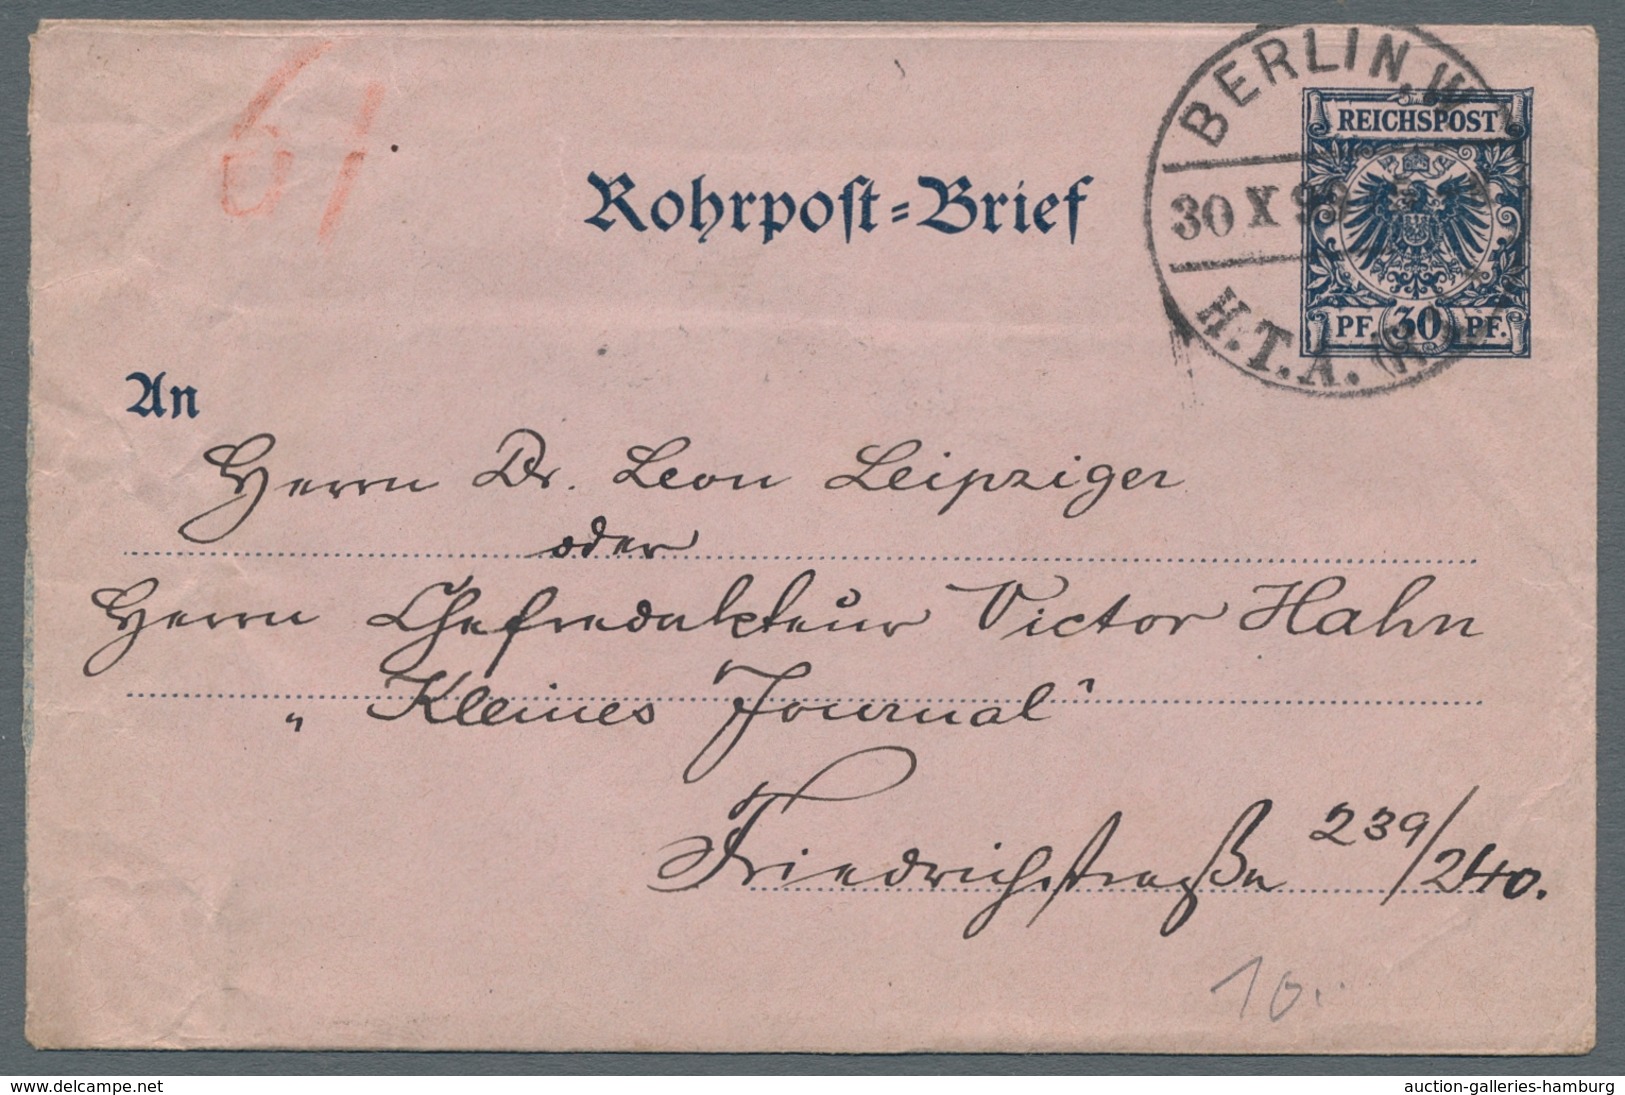 BERLIN, W
REICHSPOST
30 X 9
PF. 30 PF.
H.T.A.
61
Rohrpost-Brief
An
Herrn Dr. Leon Leipziger
oder
Herrn Chefredakteur Victor Hahn
„Kleines Journal“
Friedrichstraße 239/240.
10..
www.delcampe.net
auction-galleries-hamburg